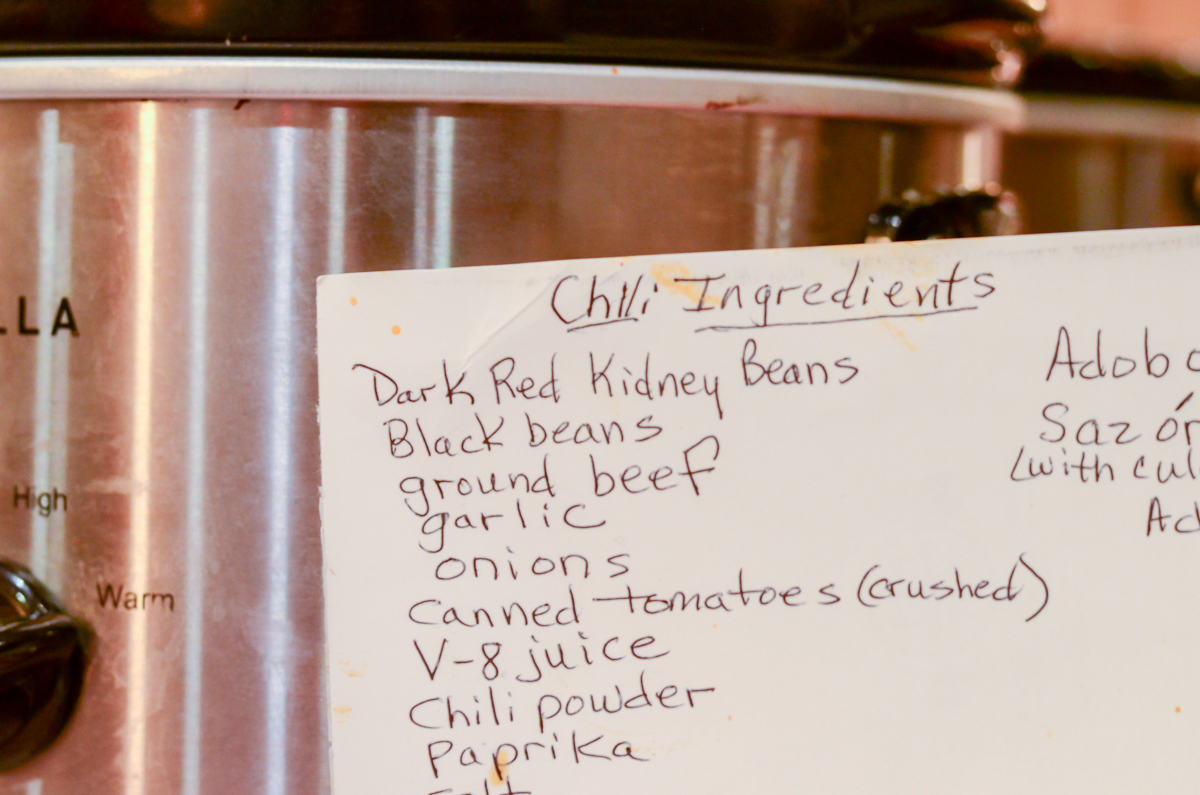 LLA
High
Warm
Chili Ingredients
Dark Red Kidney Beans
Black beans
ground beef
garlic
onions
canned tomatoes (crushed)
V-8 juice
Chili powder
Paprika
Adobo
Sazón
(with cul
Ad